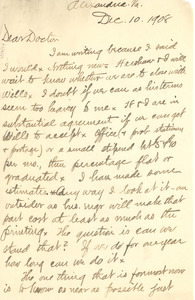 Alexandria, Va.
Dec. 10. 1908
Dear Doctor
I am writing because I said
I would. Nothing new. Hershaw & I will
wait to know whether we are to close with
Wills. I doubt if our case as listeners
seem too heavy to me. If & I are in
substantial agreement if we can get
Wills to accept office (& prob. stationery
& postage) or a small stipend
per mo., then percentage flat or
graduated. I have made some
estimates. Any way I look at it an
outsider as bus. mgr will make this
part cost at least as much as the
printing. The question is can we
stand that? If we do for one year
how long can we do it?
The one thing that is foremost now
is to know as near as possible just